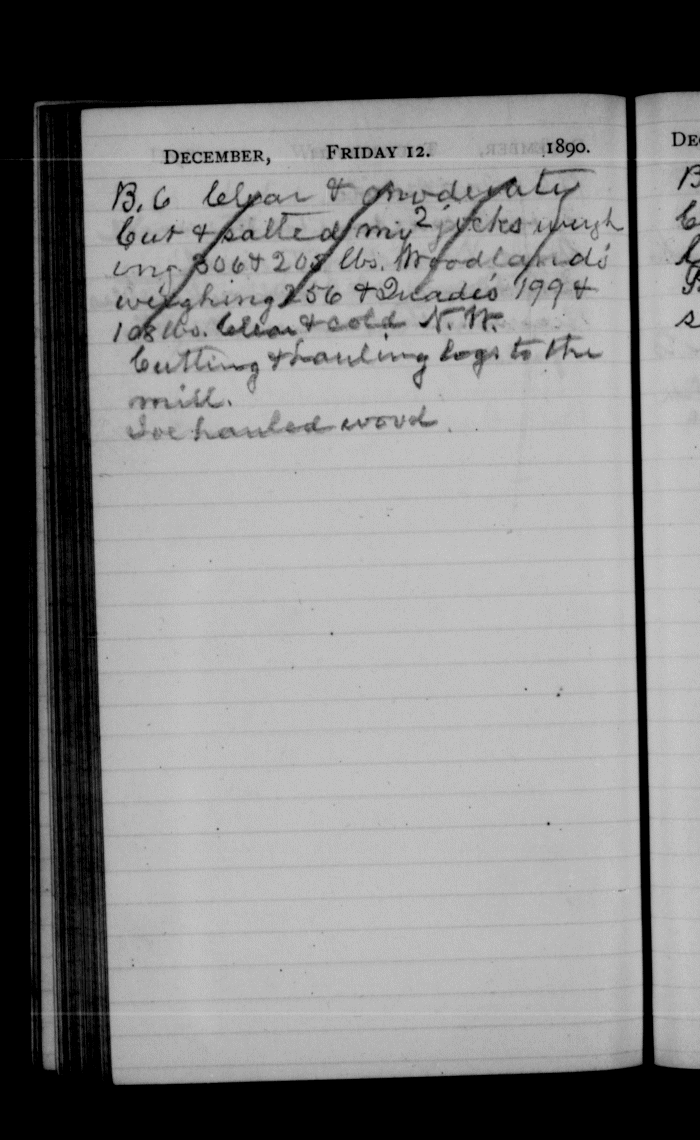 DECEMBER, FRIDAY 12. 1890.
B. 6 Clear & moderate
Cut & salted my 2 weigh
ing 306 & 208 lbs. Woodland's
weighing 256 & Quade's 199 &
108 lbs. Clear & cold N. W.
Cutting & hauling logs to the
mill.
Joe hauled wood.
DE
B